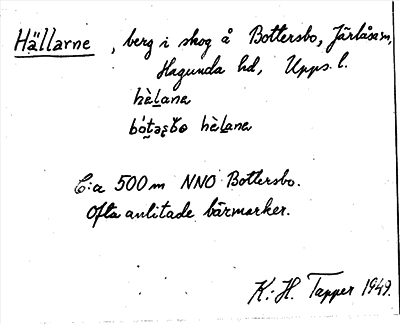 Hällarne, berg i skog å Bottersbo, Järlåsa sn,
Hagunda hd, Upps. l.
hè̱lana
bó̱təʂbo hè̱lana
C:a 500 m NNO Bottersbo.
Ofta anlitade bärmarker.
K.-H. Tapper 1949.